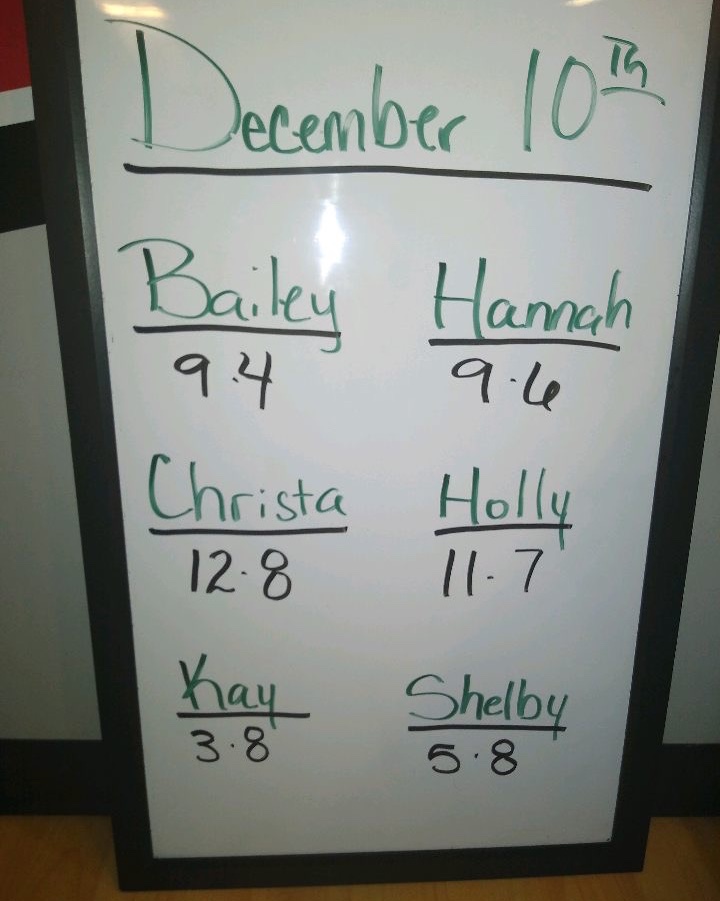 December 10Th
Bailey Hannah
9.4 9.6
Christa Holly
12.8 11.7
Kay Shelby
3.8 5.8